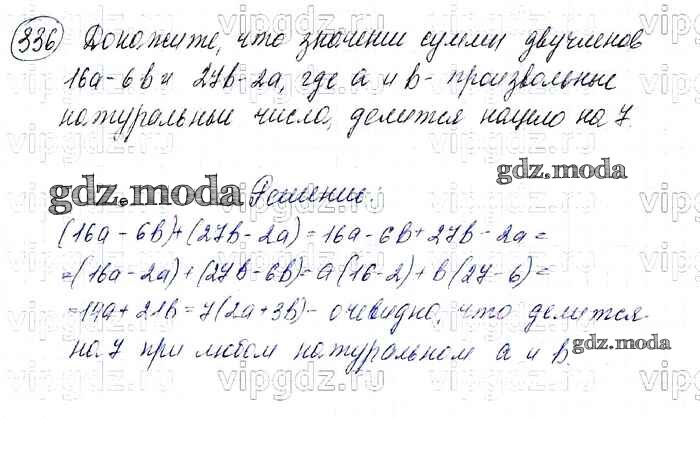 336 Докажите, что значении суммы двучленов
16a-6b и 27b-2a, где a и b- произвольные
натуральные числа, делится нацело на 7.
gdz.moda Решение:
(16a-6b)+(27b-2a)=16a-6b+27b-2a=
=(16a-2a)+(27b-6b)=a(16-2)+b(27-6)=
=14a+21b=7(2a+3b)- очевидно, что делится
на 7 при любом натуральном a и b. gdz.moda
vipgdz.ru